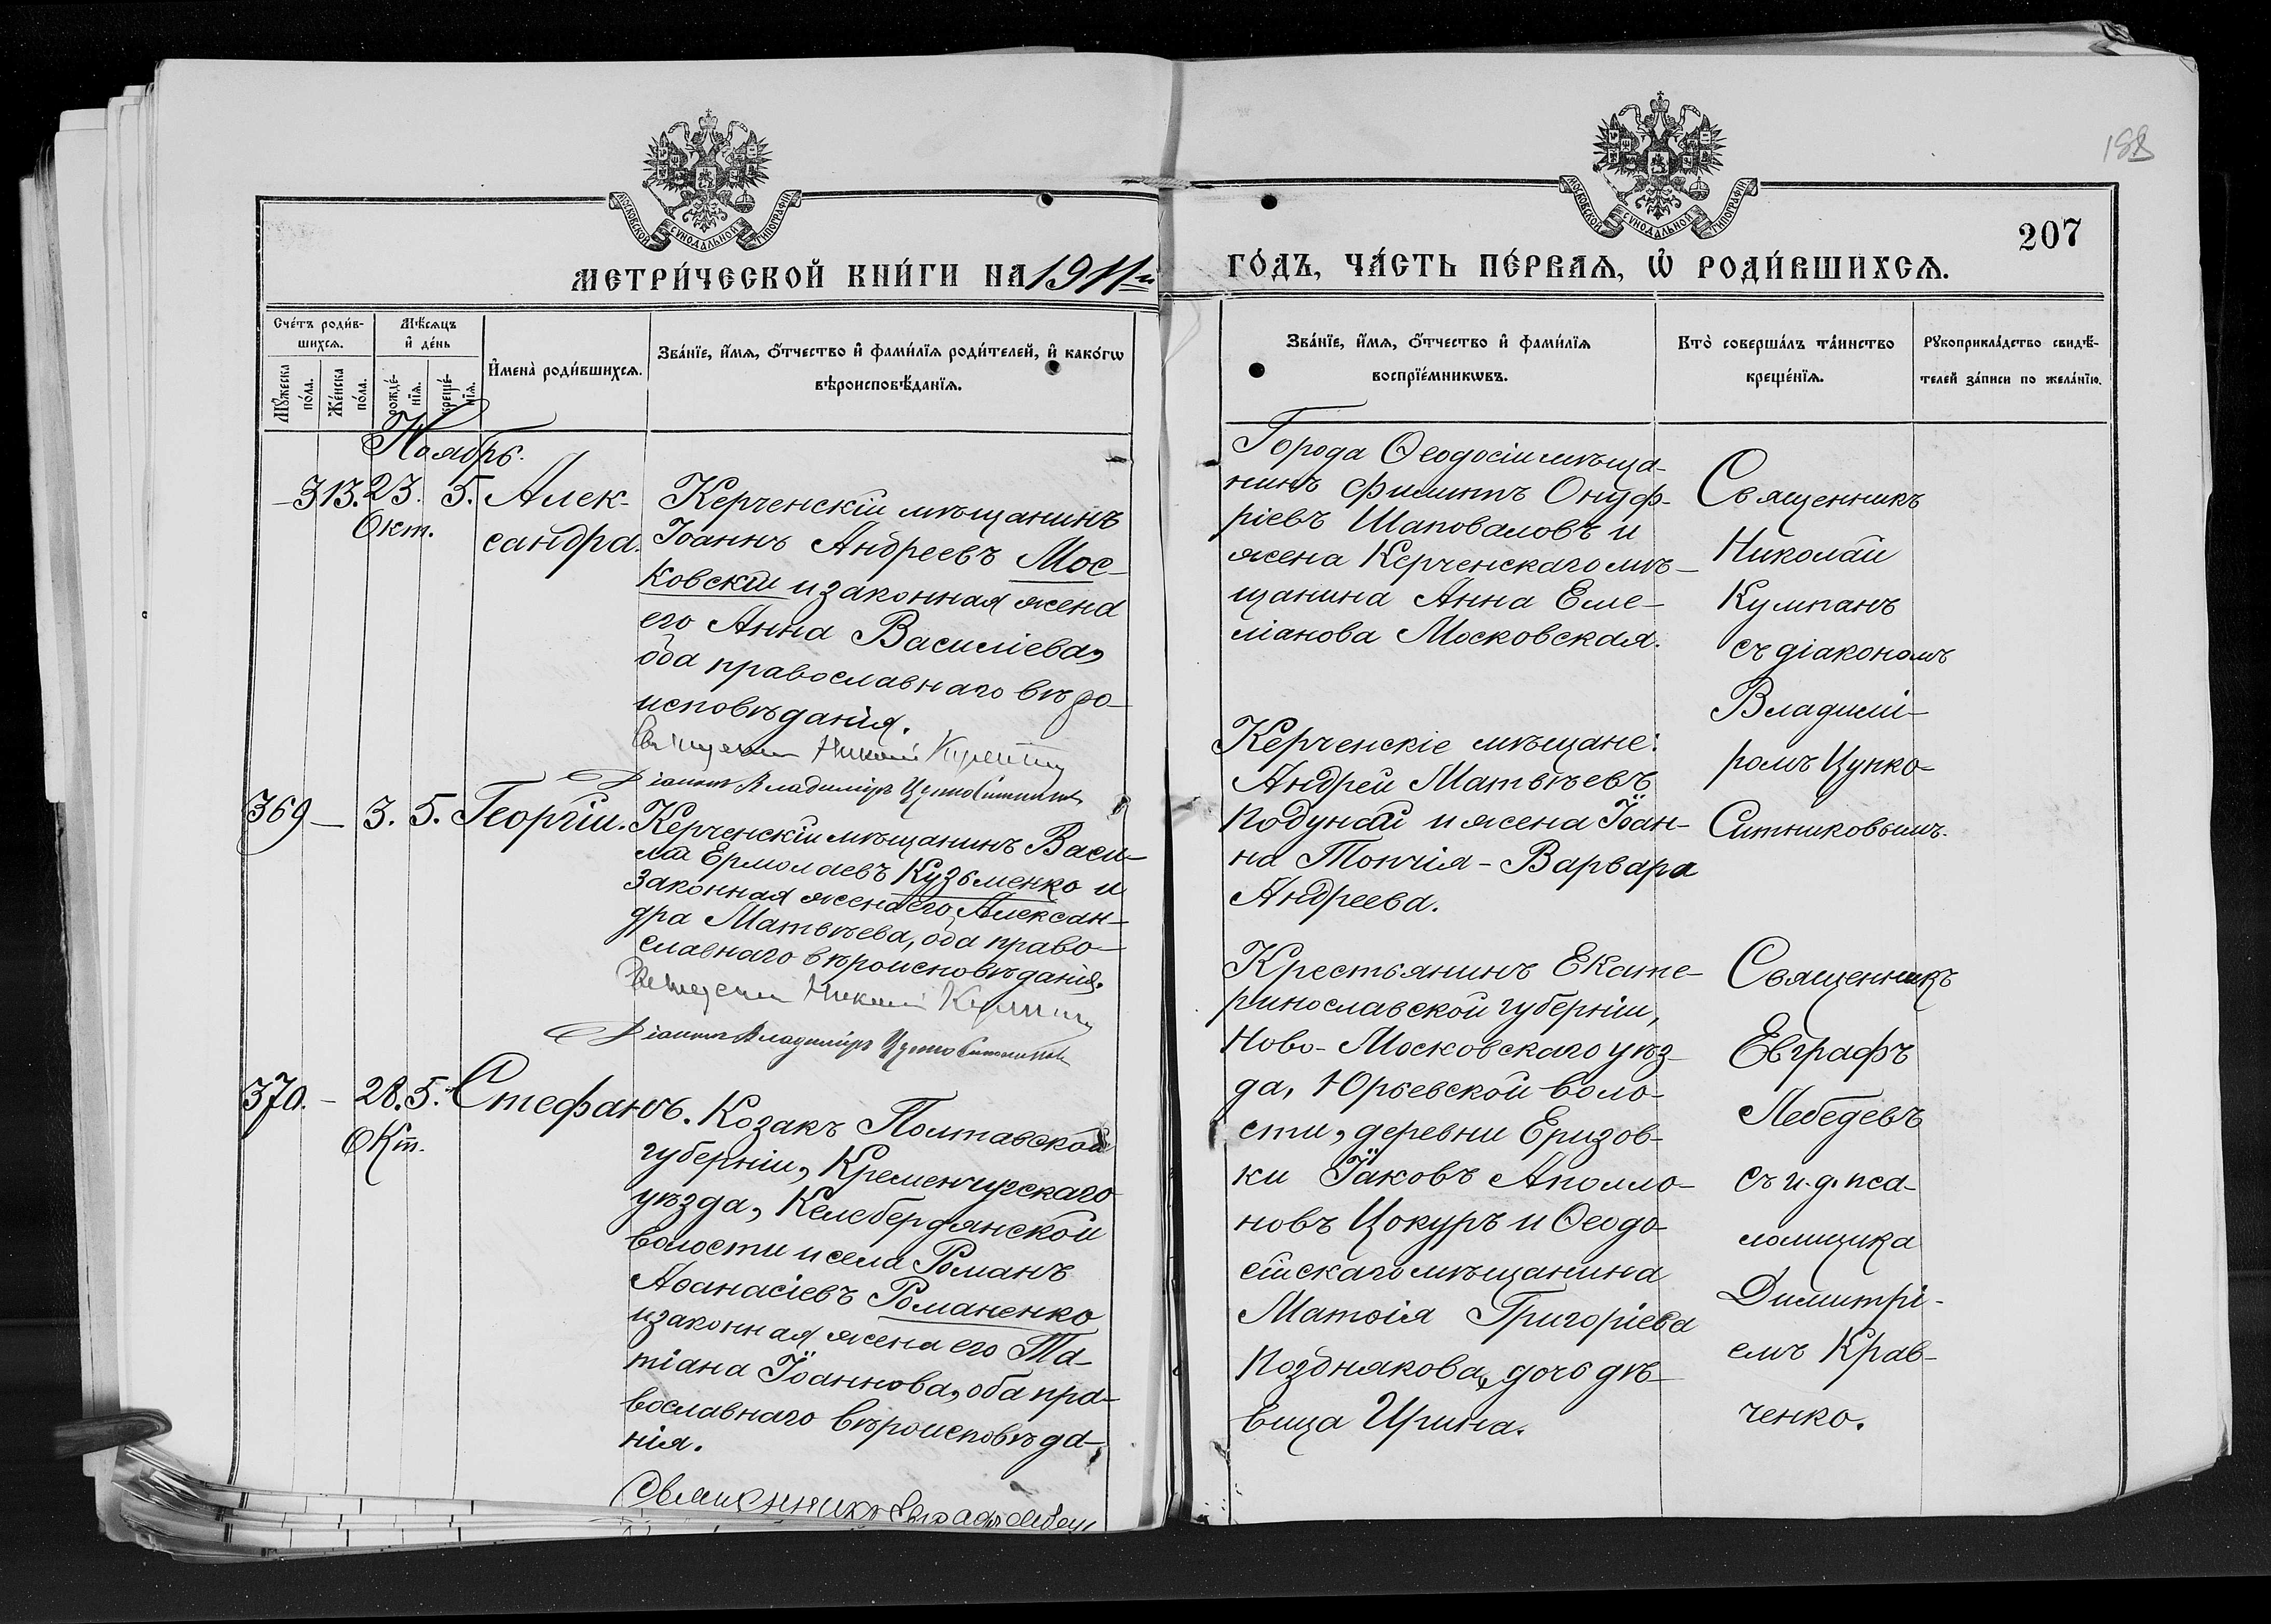 188
207
МОСКОВСКОЙ СУНОДАЛЬНОЙ ТИПОГРАФІИ
МОСКОВСКОЙ СУНОДАЛЬНОЙ ТИПОГРАФІИ
МЕТРИ́ЧЕСКОЙ КНИ́ГИ НА 1911й
ГО́ДЪ, ЧА́СТЬ ПЕ́РВАѦ, Ѡ҆ РОДИ́ВШИХСѦ.
Сче́тъ роди́в-
шихсѧ.
Мѣ́сѧцъ
и҆ де́нь
Мꙋ́жеска
по́ла.
Же́нска
по́ла.
рожде́-
нїѧ.
креще́-
нїѧ.
И҆мена̀ роди́вшихсѧ.
Зва́нїе, и҆́мѧ, ѻ҆́тчество и҆ фами́лїѧ роди́телей, и҆ како́гѡ
вѣроисповѣ́данїѧ.
Зва́нїе, и҆́мѧ, ѻ҆́тчество и҆ фами́лїѧ
воспрїе́мникѡвъ.
Кто̀ соверша́лъ та́инство
креще́нїѧ.
Рꙋкоприкла́дство свидѣ́-
телей за́писи по жела́нїю.
Ноябрь.
313. 23. 5. Алек-
Окт. сандра.
Керченскій мѣщанинъ
Іоаннъ Андреевъ Мос-
ковскій и законная жена
его Анна Василіева,
оба православнаго вѣро-
исповѣданія.
Священник Николай Кумпан
Діаконъ Владиміръ Цупко Ситников
Города Ѳеодосіи мѣща-
нинъ Филиппъ Онуф-
ріевъ Шаповаловъ и
жена Керченскаго мѣ-
щанина Анна Еме-
ліанова Московская.
Священникъ
Николай
Кумпанъ
съ діакономъ
Владимі-
ромъ Цупко-
Ситниковымъ.
369 – 3. 5. Георгій.
Керченскій мѣщанинъ Васи-
лій Ермолаевъ Кузьменко и
законная жена его Алексан-
дра Матвѣева, оба право-
славнаго вѣроисповѣданія.
Священник Николай Кумпан
Діаконъ Владиміръ Цупко Ситников
Керченскіе мѣщане:
Андрей Матвѣевъ
Подунай и жена Іоан-
на Топчія – Варвара
Андреева.
370. – 28. 5. Стефанъ.
Окт.
Козакъ Полтавской
губерніи, Кременчугскаго
уѣзда, Келебердянской
волости и села Романъ
Аѳанасіевъ Романенко
и законная жена его Та-
тіана Іоаннова, оба пра-
вославнаго вѣроисповѣда-
нія.
Священникъ Евграфъ Лебедев
Крестьянинъ Екате-
ринославской губерніи,
Ново-Московскаго уѣз-
да, Юрьевской воло-
сти, деревни Еризов-
ки Іаковъ Аполло-
новъ Цокуръ и Ѳеодо-
сійскаго мѣщанина
Матѳія Григоріева
Позднякова, дочь дѣ-
вица Ирина.
Священникъ
Евграфъ
Лебедевъ
съ и. д. пса-
ломщика
Димитрі-
емъ Крав-
ченко.